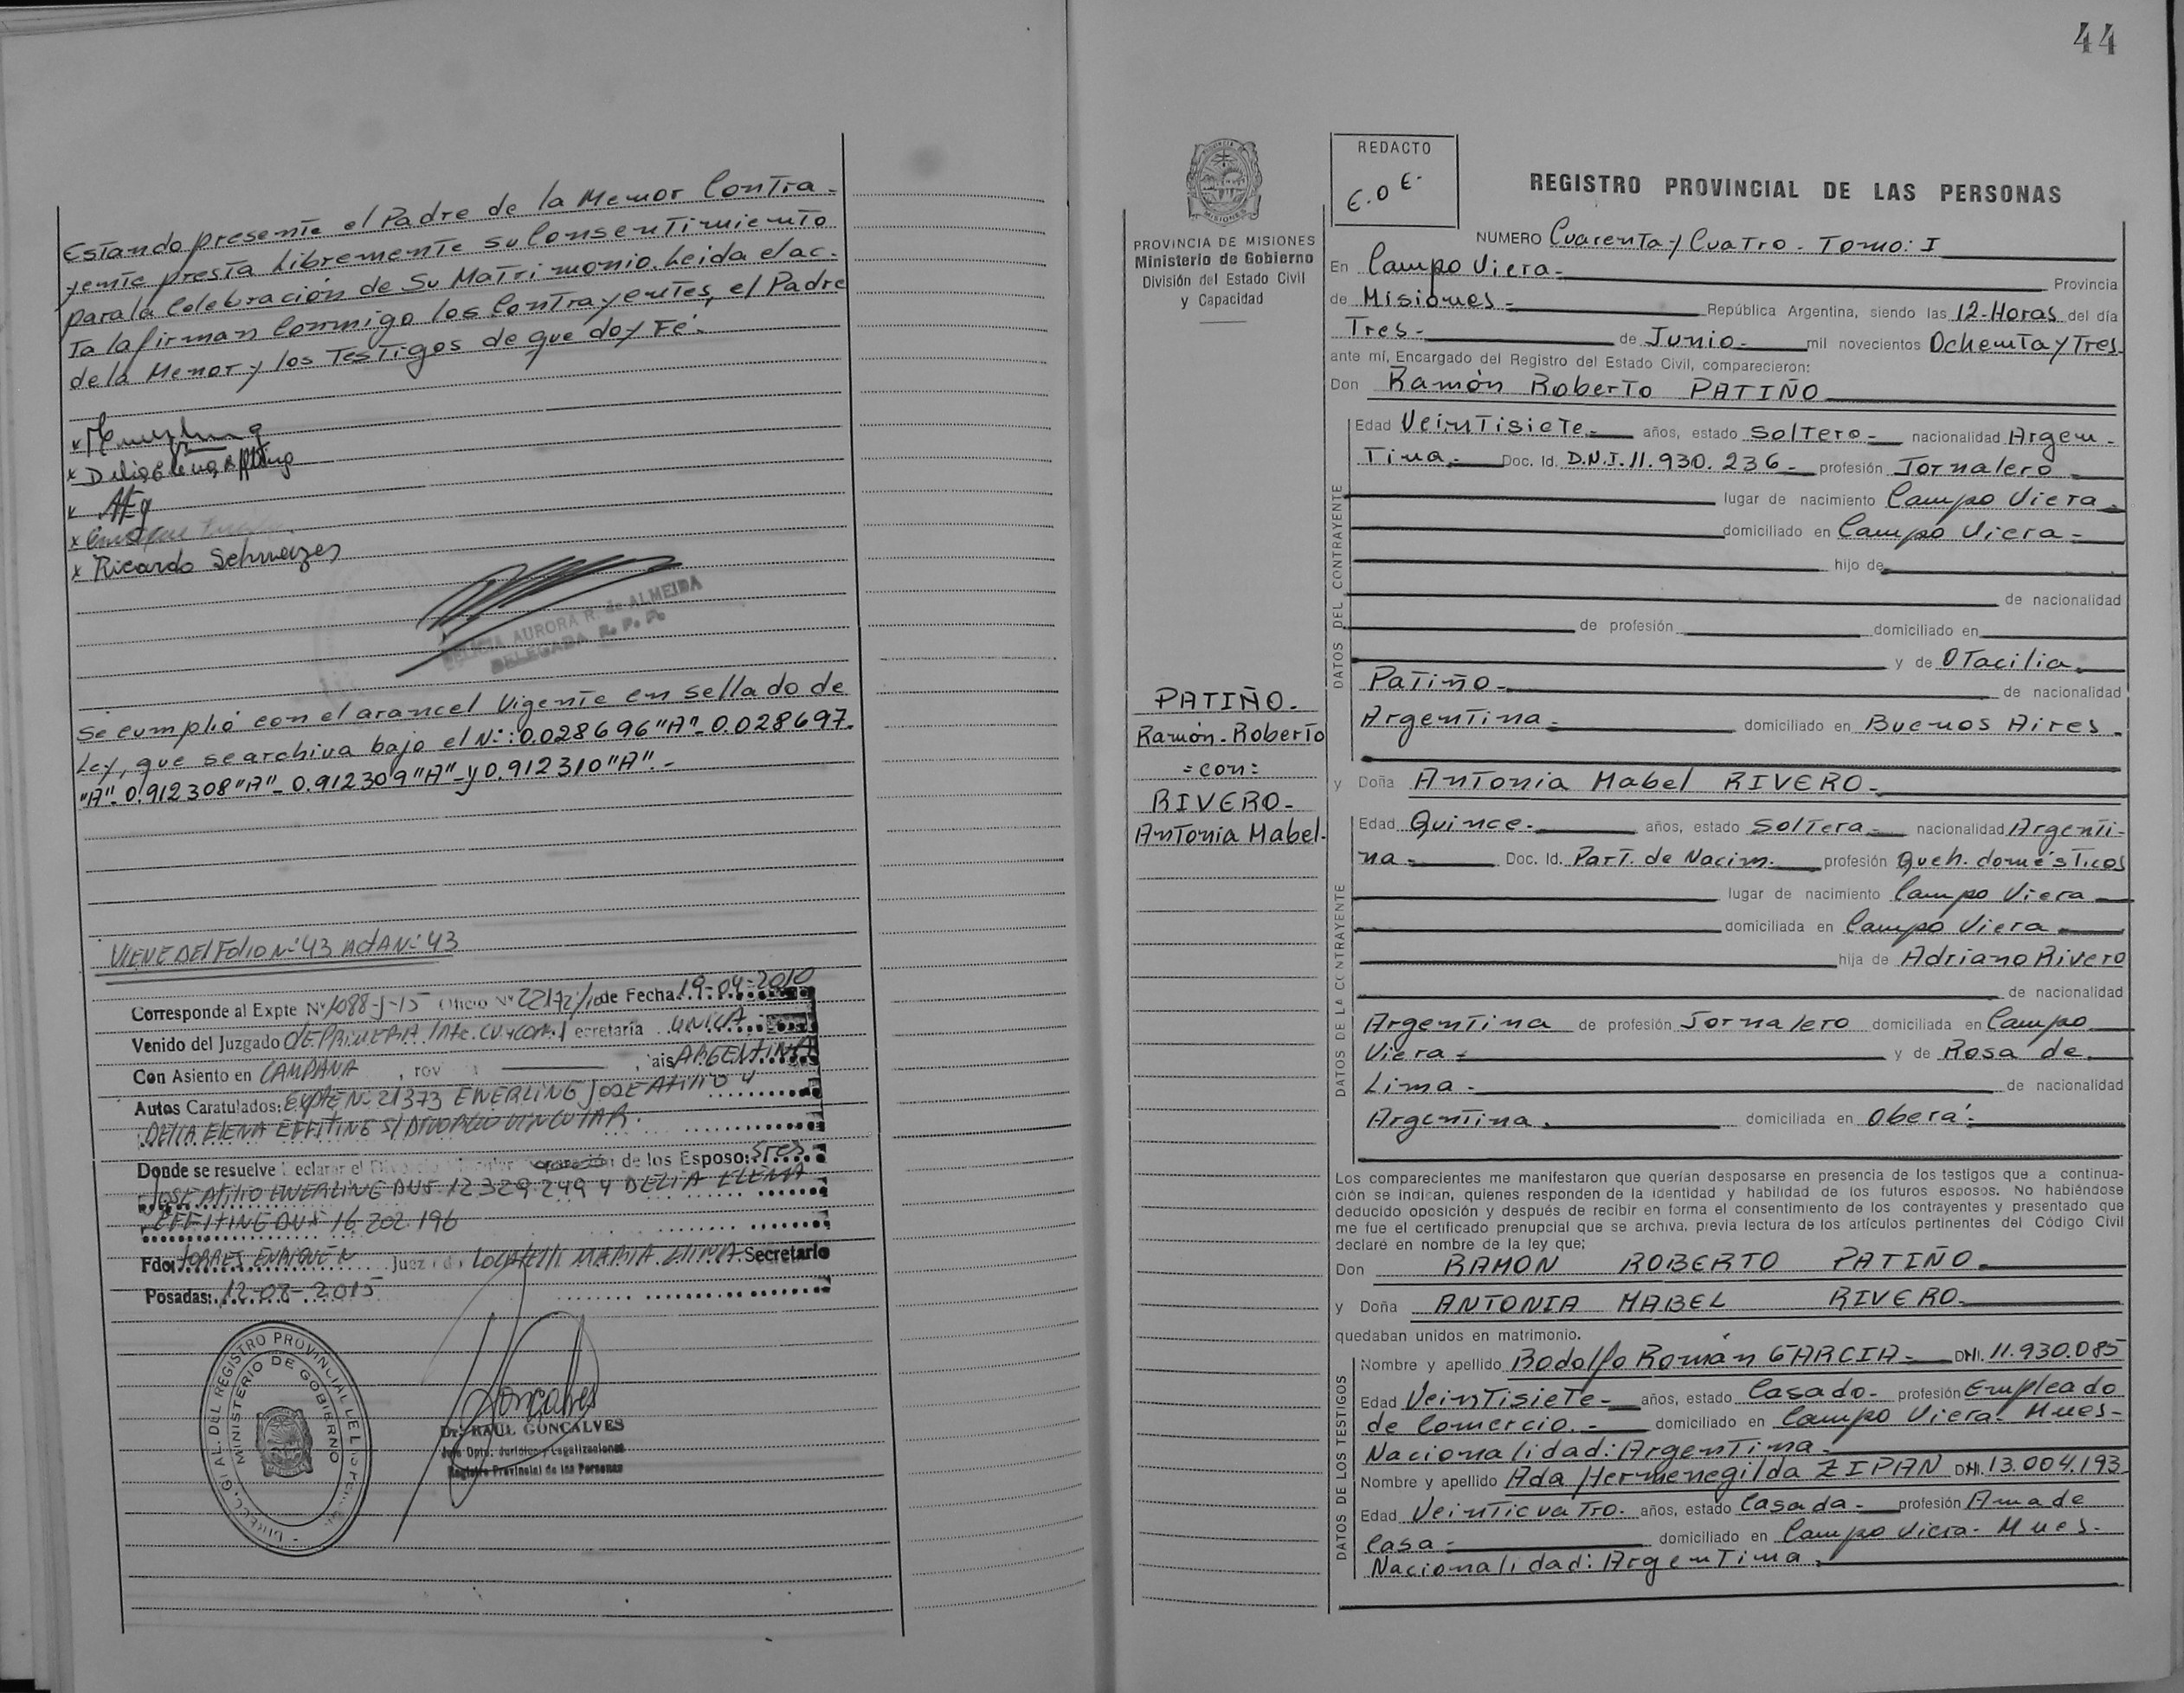 Estando presente el Padre de la Menor Contra-
yente presta Libremente su Consentimiento
para la Celebración de Su Matrimonio. Leida el ac-
Ta la firman Conmigo los Contrayentes, el Padre
de la Menor y los Testigos de que doy Fé.-
x
x Delia Elena
x
x
x Ricardo Schweizer
FELICIA AURORA R. de ALMEIDA
DELEGADA R. P. P.
Se cumplió con el arancel Vigente en sellado de
Ley, que se archiva bajo el Nº: 0.028696 "A"- 0.028697-
"A"- 0.912308 "A"- 0.912309 "A"- y 0.912310 "A".-
VIENE DEL Folio Nº 43 ActA Nº 43
Corresponde al Expte Nº 1088-J-15 Oficio Nº 22172/10 de Fecha 19-04-2010
Venido del Juzgado DE PRIMERA Inte. CV y COM. Secretaría UNICA
Con Asiento en CAMPANA, rov , ais ARGENTINA
Autos Caratulados: expte Nº 21373 EWERLING JOSE Atilio y
DELIA ELENA EFFITING S/ DIVORCIO VINCULAR.
Donde se resuelve Declarar el Divorcio Vincular de los Esposo: Sres
JOSE Atilio EWERLING DNI. 12 329 249 y DELIA ELENA
EFFITING DNI 16 202 196
Fdo: TORRES ENRIQUE N Juez LOCATELLI MARIA ELINA Secretario
Posadas: 12-08-2015
DIRECC. GRAL. DEL REGISTRO PROVINCIAL DE LAS PERSONAS
MINISTERIO DE GOBIERNO
Goncalves
Dr. RAUL GONCALVES
Jefe Dpto. Jurídico y Legalizaciones
Registro Provincial de las Personas
44
MISIONES
PROVINCIA DE MISIONES
Ministerio de Gobierno
División del Estado Civil
y Capacidad
PATIÑO.-
Ramón-Roberto
=con=
RIVERO-
Antonia Mabel-
REDACTO
E.O E.
REGISTRO PROVINCIAL DE LAS PERSONAS
NUMERO Cuarenta y Cuatro - Tomo: I
En Campo Viera- Provincia
de Misiones- República Argentina, siendo las 12-Horas del día
Tres- de Junio- mil novecientos Ochenta y Tres-
ante mí, Encargado del Registro del Estado Civil, comparecieron:
Don Ramón Roberto PATIÑO
DATOS DEL CONTRAYENTE
Edad Veintisiete- años, estado Soltero- nacionalidad Argen-
Tina- Doc. Id. D.N.I. 11.930.236- profesión Jornalero
lugar de nacimiento Campo Viera-
domiciliado en Campo Viera-
hijo de
de nacionalidad
de profesión domiciliado en
y de Otacilia
Patiño- de nacionalidad
Argentina- domiciliado en Buenos Aires-
y Doña Antonia Mabel RIVERO-
DATOS DE LA CONTRAYENTE
Edad Quince- años, estado Soltera- nacionalidad Argenti-
na- Doc. Id. Part. de Nacim. profesión Queh. domésticos
lugar de nacimiento Campo Viera
domiciliada en Campo Viera
hija de Adriano Rivero
de nacionalidad
Argentina de profesión Jornalero domiciliada en Campo
Viera- y de Rosa de
Lima- de nacionalidad
Argentina. domiciliada en Oberá-
Los comparecientes me manifestaron que querían desposarse en presencia de los testigos que a continua-
ción se indican, quienes responden de la identidad y habilidad de los futuros esposos. No habiéndose
deducido oposición y después de recibir en forma el consentimiento de los contrayentes y presentado que
me fue el certificado prenupcial que se archiva, previa lectura de los artículos pertinentes del Código Civil
declaré en nombre de la ley que:
Don RAMON ROBERTO PATIÑO
y Doña ANTONIA MABEL RIVERO
quedaban unidos en matrimonio.
DATOS DE LOS TESTIGOS
Nombre y apellido Rodolfo Román GARCIA- DNI. 11.930.085
Edad Veintisiete- años, estado Casado- profesión Empleado
de Comercio- domiciliado en Campo Viera- Mnes-
Nacionalidad: Argentina-
Nombre y apellido Ada Hermenegilda ZIPAN DNI. 13.004.193
Edad Veinticuatro- años, estado Casada- profesión Ama de
Casa- domiciliado en Campo Viera- Mnes-
Nacionalidad: Argentina